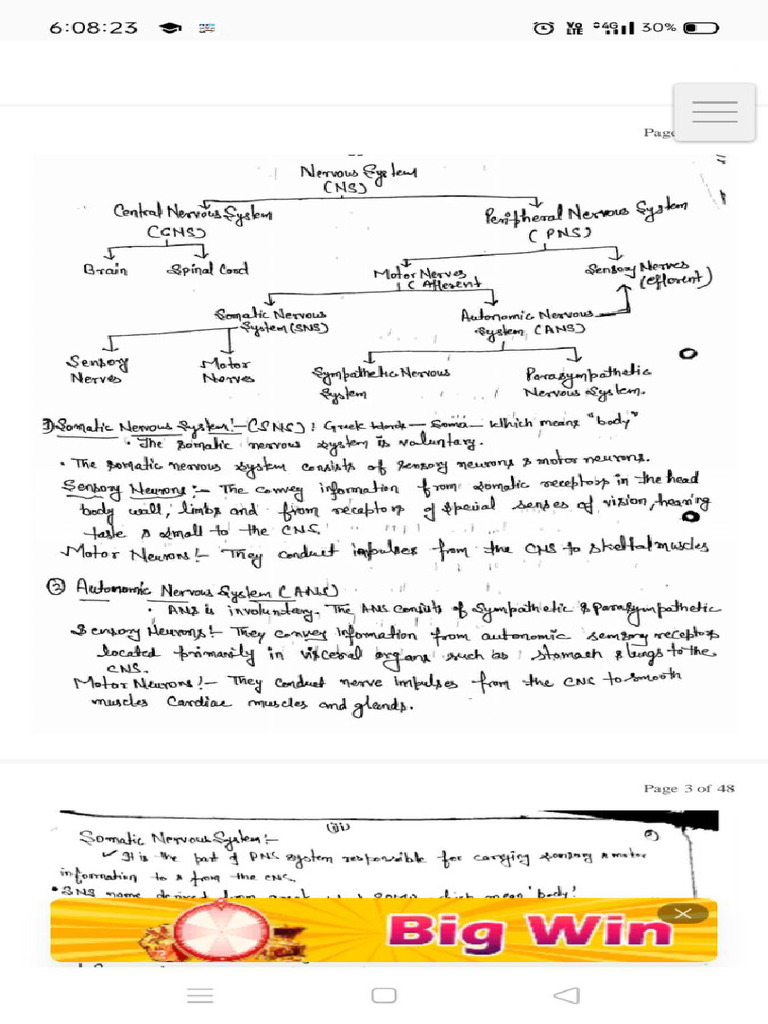 6:08:23
VoLTE 4G 30%
Page
Nervous System
(NS)
Central Nervous System
(CNS)
Peripheral Nervous System
(PNS)
Brain
Spinal Cord
Motor Nerves
(Afferent
Sensory Nerves
(efferent)
Somatic Nervous
System (SNS)
Autonomic Nervous
System (ANS)
Sensory
Nerves
Motor
Nerves
Sympathetic Nervous
System
Parasympathetic
Nervous System.
1) Somatic Nervous System:- (SNS): Greek Words — Soma — Which means "body"
• The somatic nervous system is voluntary.
• The somatic nervous system consists of sensory neurons & motor neurons.
Sensory Neurons:- The convey information from somatic receptors in the head
body wall, limbs and from receptors of special senses of vision, hearing
taste & small to the CNS.
Motor Neurons:- They conduct impulses from the CNS to skeltal muscles
② Autonomic Nervous System (ANS)
• ANS is involuntary. The ANS consists of Sympathetic & Parasympathetic
Sensory Neurons:- They convey information from autonomic sensory receptors
located primarily in visceral organs such as stomach & lungs to the
CNS.
Motor Neurons:- They conduct nerve impulses from the CNS to smooth
muscles Cardiac muscles and glands.
Page 3 of 48
Somatic Nervous System:-
✓ It is the part of PNS system responsible for carrying sensory & motor
information to & from the CNS.
• SNS name derived from greek which mean 'body'
Big Win